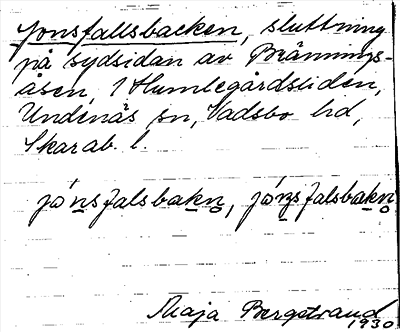 Jonsfallsbacken, sluttning
på sydsidan av Brännings-
åsen, i Humlegårdsliden,
Undenäs sn, Vadsbo hd,
Skarab. l.
jónsfalsbakn, jónsfalsbakn
Maja Bergstrand
1930